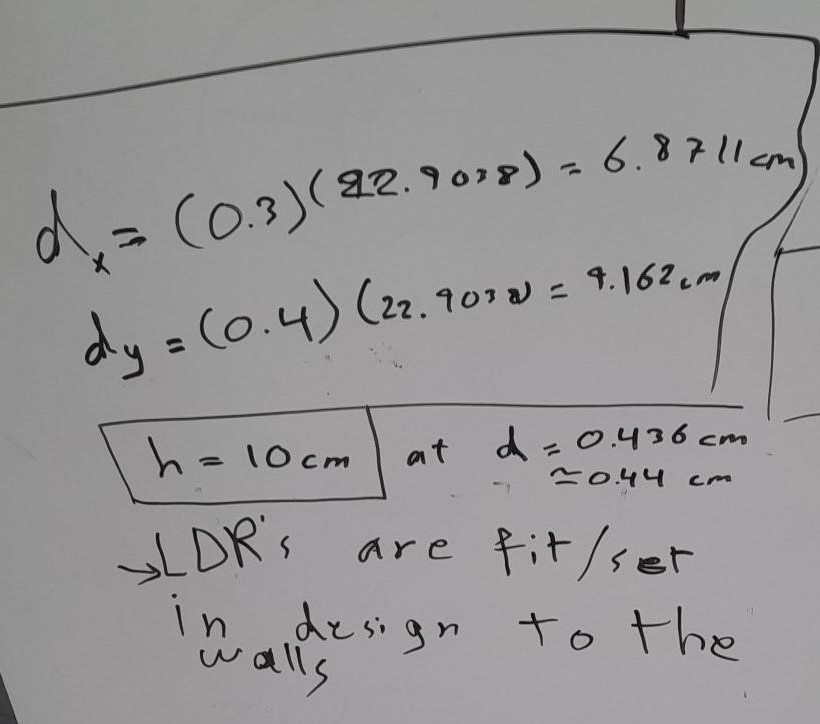 dx = (0.3)(22.9038) = 6.8711cm
dy = (0.4)(22.9038) = 9.162cm
h = 10cm at d = 0.436 cm
≃0.44 cm
→LDR's are fit/set
in design to the
walls